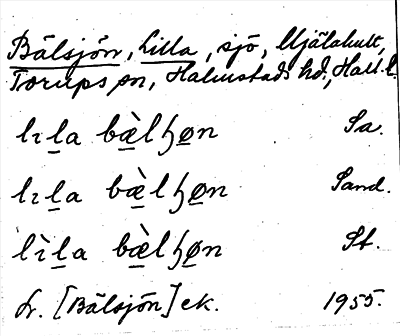 Bälsjön, Lilla, sjö, Mjälahult,
Torups sn, Halmstads hd., Hall. l.
lɪla bæ̀lɧøn Sa.
lɪla bæ̀lɧøn Sand.
lɪ̀la bæ̀lɧøn St.
Lr. [Bälsjön] ek. 1955.